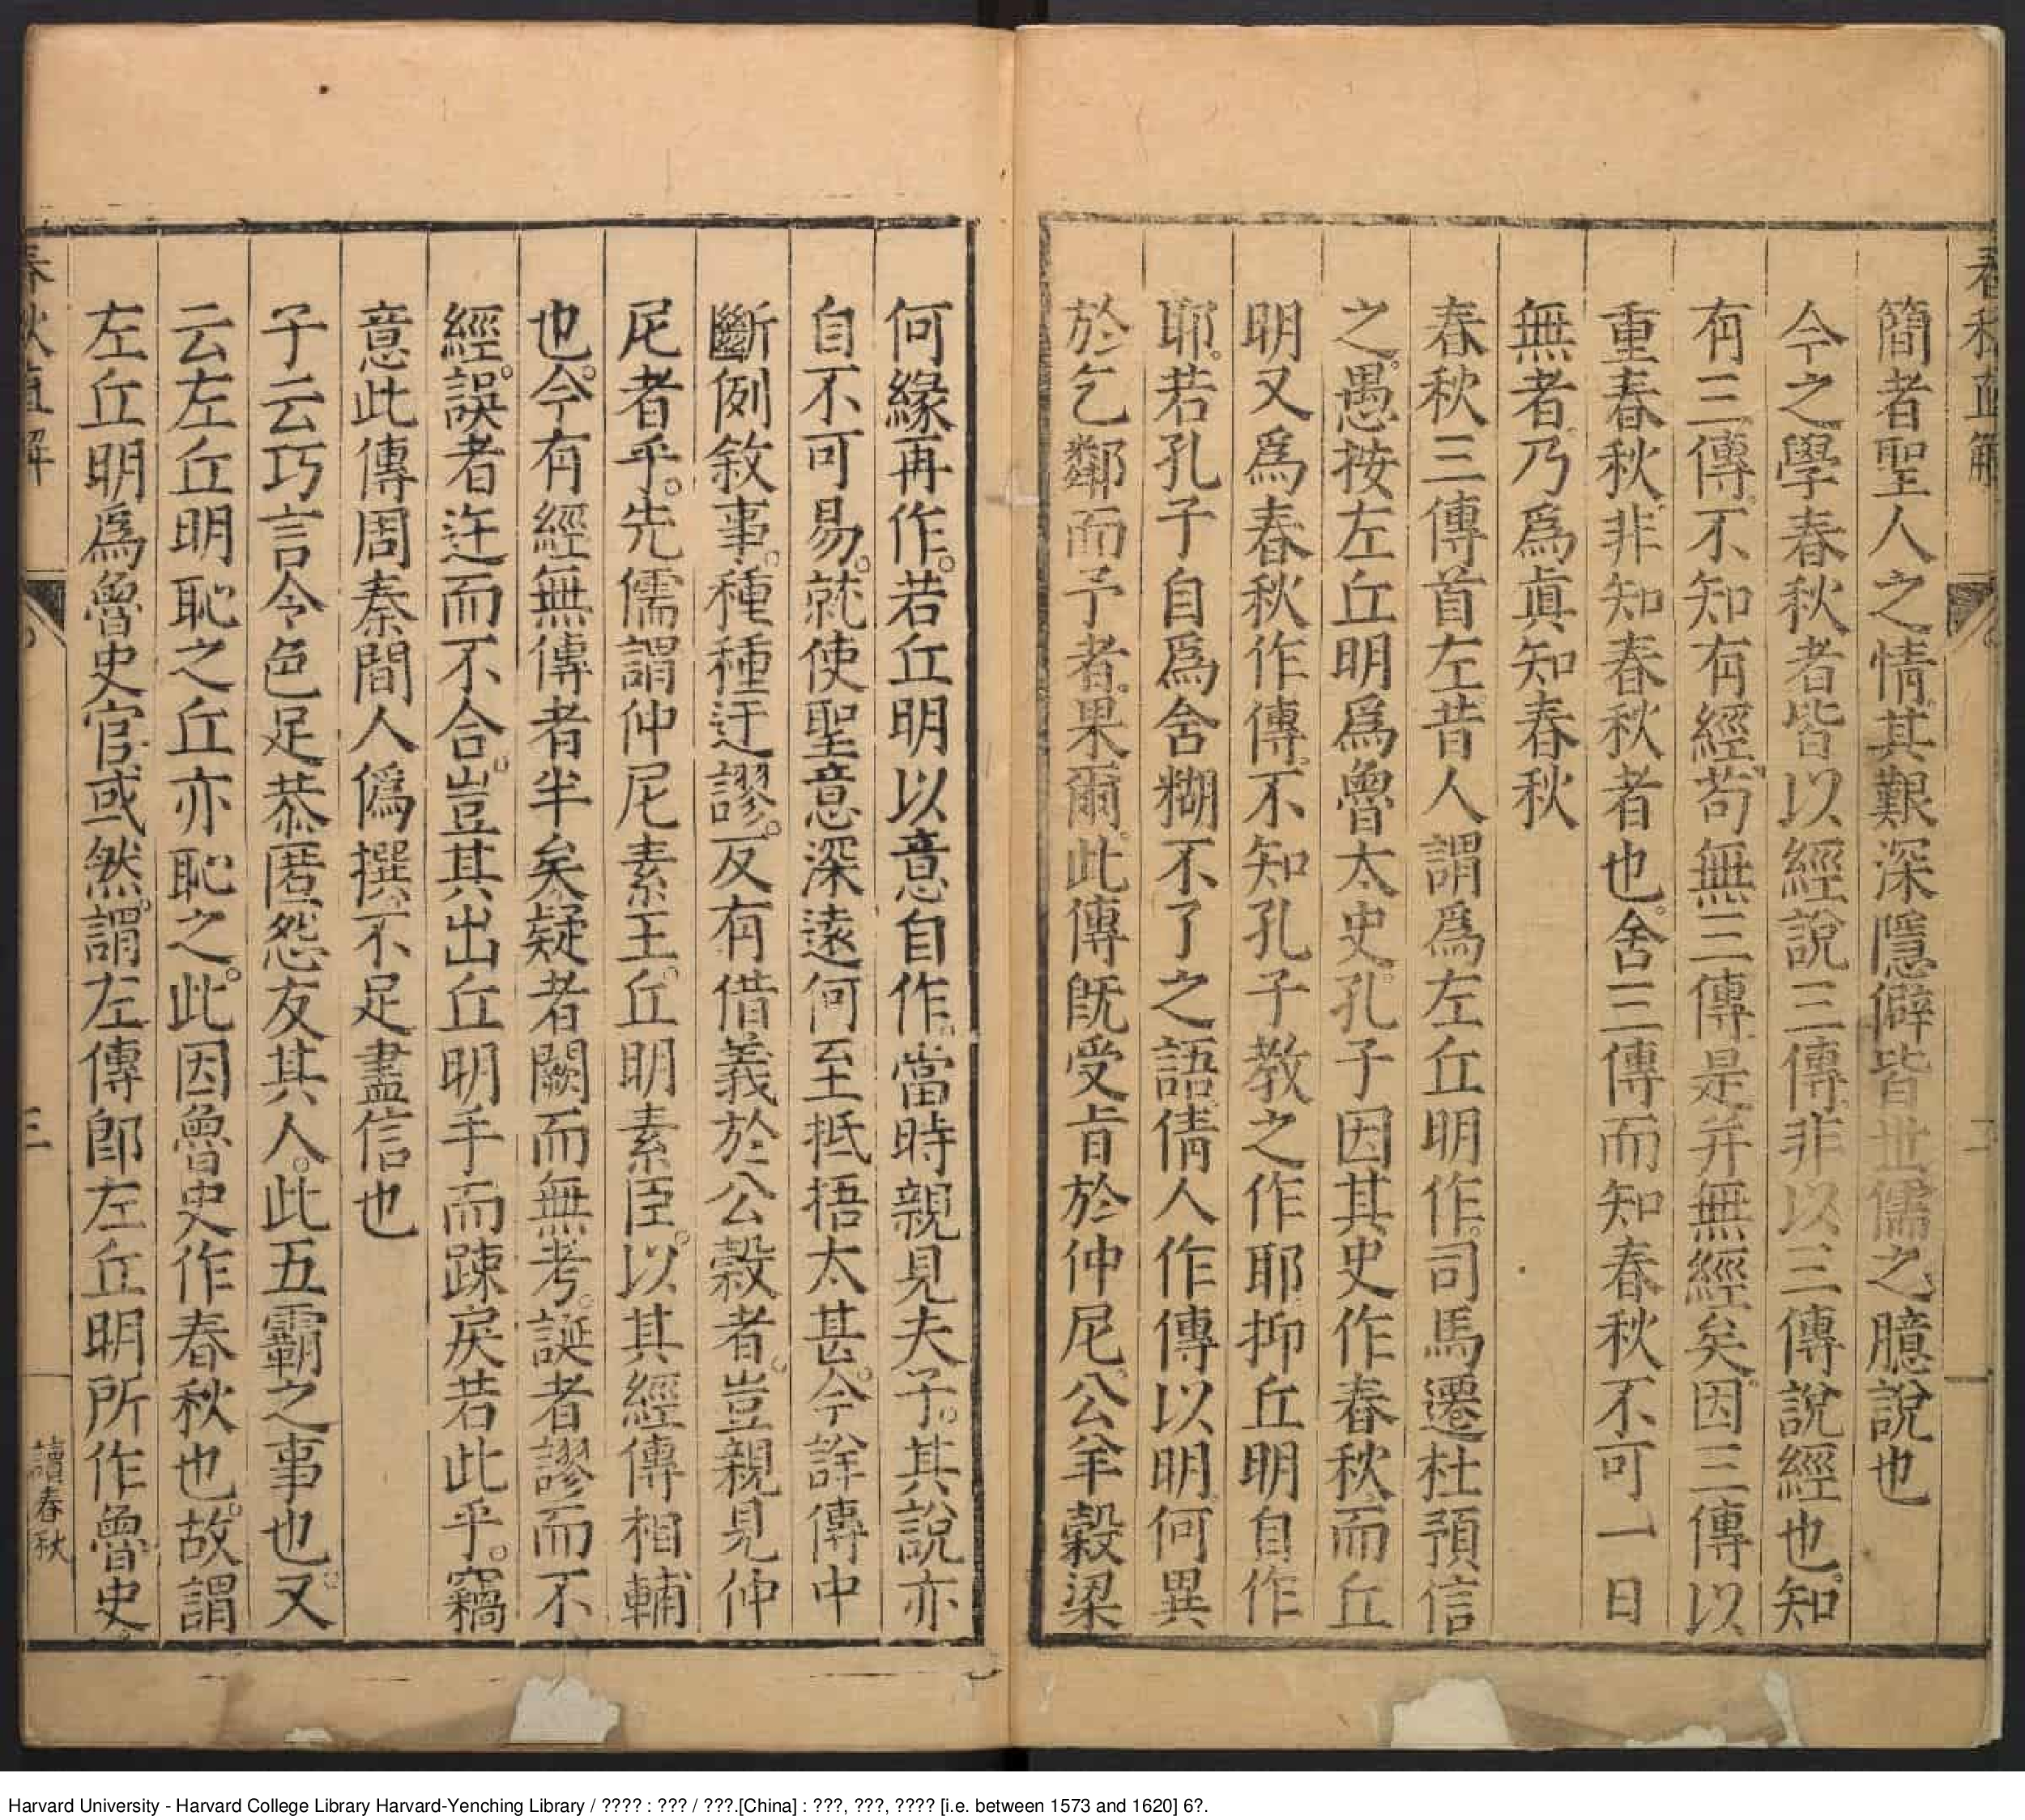 春秋直解
二
簡者聖人之情其艱深隱僻皆世儒之臆說也
今之學春秋者皆以經說三傳非以三傳說經也知
有三傳不知有經苟無三傳是并無經矣因三傳以
重春秋非知春秋者也舍三傳而知春秋不可一日
無者乃爲眞知春秋
春秋三傳首左昔人謂爲左丘明作司馬遷杜預信
之愚按左丘明爲魯太史孔子因其史作春秋而丘
明又爲春秋作傳不知孔子教之作耶抑丘明自作
耶若孔子自爲含糊不了之語倩人作傳以明何異
於乞鄰而予者果爾此傳旣受旨於仲尼公羊穀梁
何緣再作若丘明以意自作當時親見夫子其說亦
自不可易就使聖意深遠何至抵捂太甚今詳傳中
斷例敘事種種迂謬反有借義於公穀者豈親見仲
尼者乎先儒謂仲尼素王丘明素臣以其經傳相輔
也今有經無傳者半矣疑者闕而無考誕者謬而不
經誤者迕而不合豈其出丘明手而踈戾若此乎竊
意此傳周秦間人僞撰不足盡信也
子云巧言令色足恭匿怨友其人此五霸之事也又
云左丘明恥之丘亦恥之此因魯史作春秋也故謂
左丘明爲魯史官或然謂左傳卽左丘明所作魯史
春秋直解
三
讀春秋
Harvard University - Harvard College Library Harvard-Yenching Library / ???? : ??? / ???.[China] : ???, ???, ???? [i.e. between 1573 and 1620] 6?.